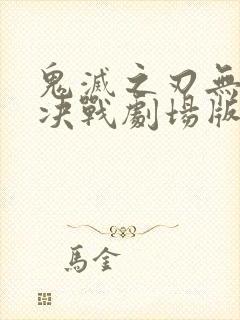 鬼滅之刃無
决戰劇場版
馬金